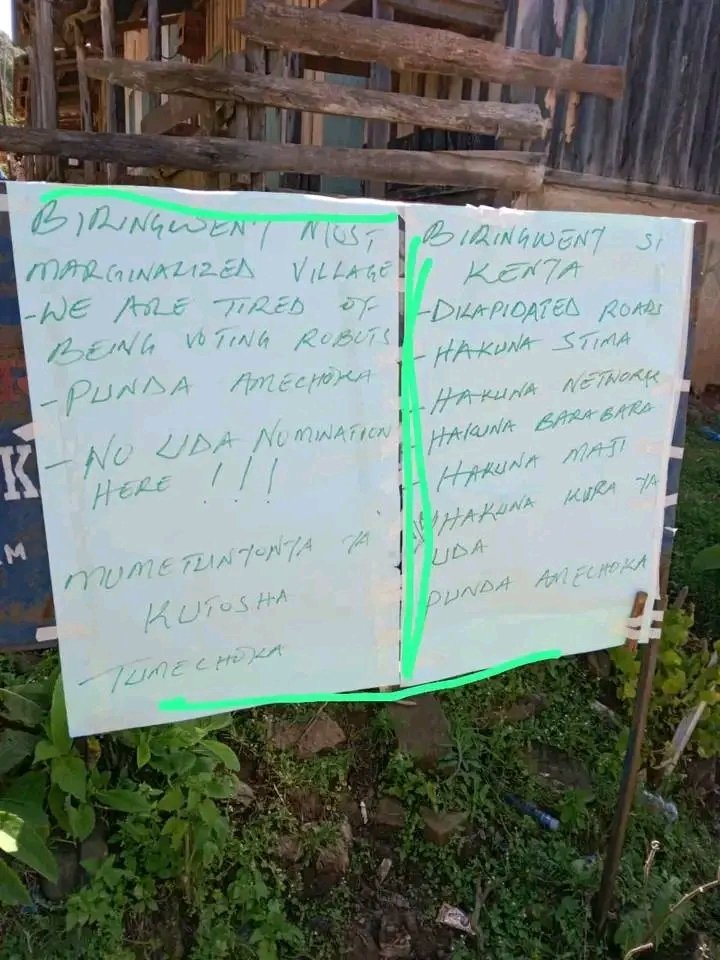 BIRINGWENY MOST
MARGINALIZED VILLAGE
-WE ARE TIRED OF
BEING VOTING ROBOTS
- PUNDA AMECHOKA
- NO UDA NOMINATION
HERE !!!
MUMETUNYONYA YA
KUTOSHA
- TUMECHOKA
BIRINGWENY SI
KENYA
- DILAPIDATED ROADS
- HAKUNA STIMA
- HAKUNA NETWORK
- HAKUNA BARABARA
- HAKUNA MAJI
HAKUNA KURA YA
UDA
PUNDA AMECHOKA
K
M